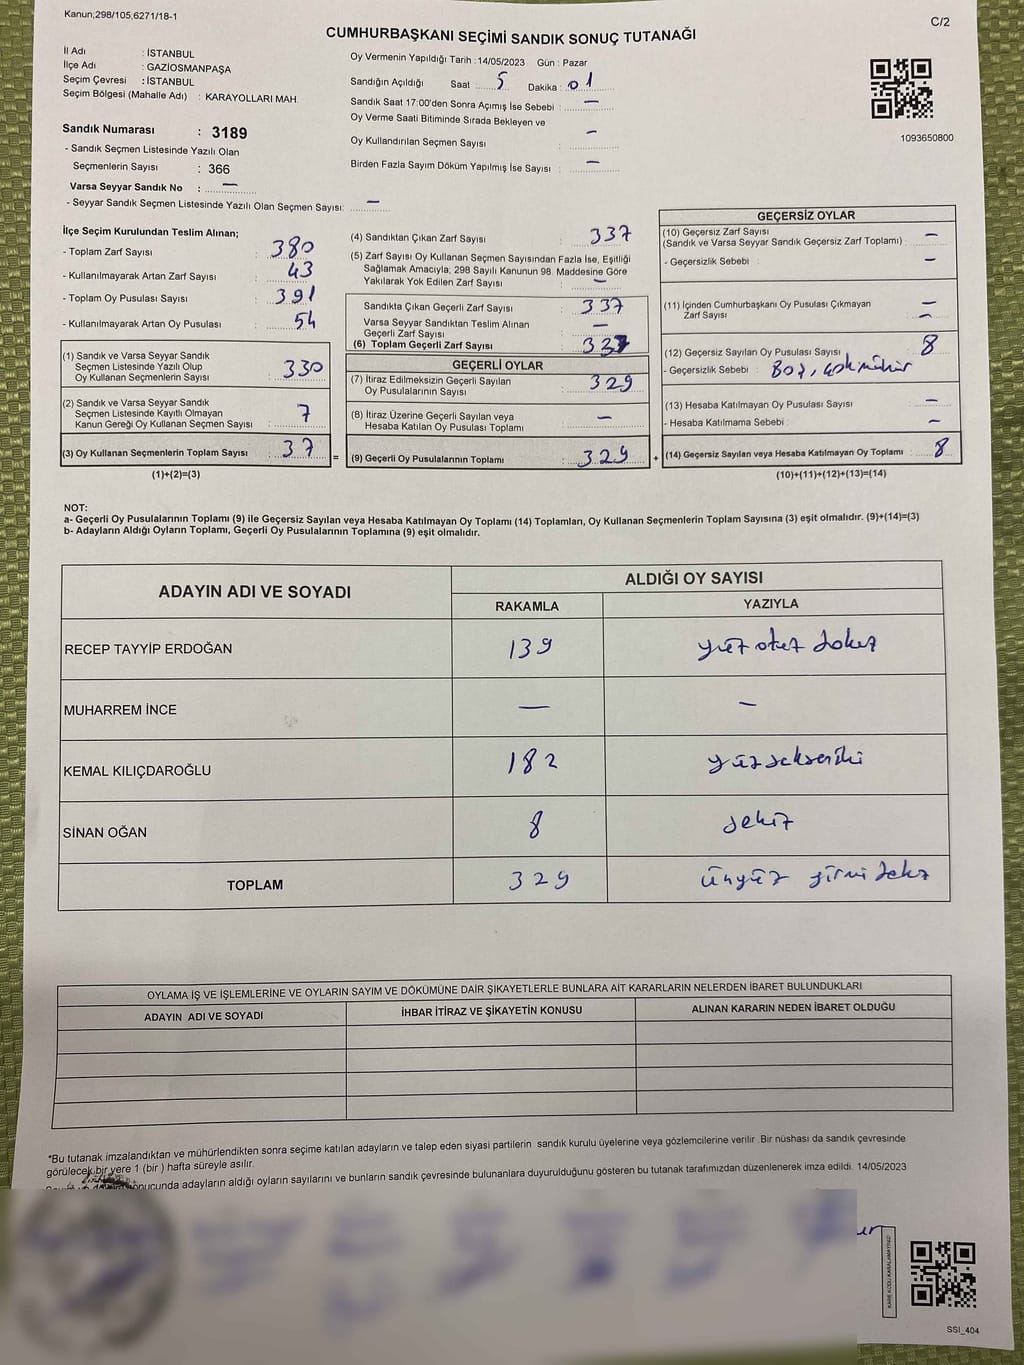 Kanun;298/105,6271/18-1
C/2
CUMHURBAŞKANI SEÇİMİ SANDIK SONUÇ TUTANAĞI
İl Adı : İSTANBUL
İlçe Adı : GAZİOSMANPAŞA
Seçim Çevresi : İSTANBUL
Seçim Bölgesi (Mahalle Adı) : KARAYOLLARI MAH.
Sandık Numarası : 3189
- Sandık Seçmen Listesinde Yazılı Olan
Seçmenlerin Sayısı : 366
Varsa Seyyar Sandık No : —
- Seyyar Sandık Seçmen Listesinde Yazılı Olan Seçmen Sayısı: —
Oy Vermenin Yapıldığı Tarih : 14/05/2023 Gün : Pazar
Sandığın Açıldığı Saat 5 Dakika : 01
Sandık Saat 17:00'den Sonra Açımış İse Sebebi : —
Oy Verme Saati Bitiminde Sırada Bekleyen ve
Oy Kullandırılan Seçmen Sayısı : —
Birden Fazla Sayım Döküm Yapılmış İse Sayısı : —
1093650800
İlçe Seçim Kurulundan Teslim Alınan;
- Toplam Zarf Sayısı : 380
- Kullanılmayarak Artan Zarf Sayısı : 43
- Toplam Oy Pusulası Sayısı : 391
- Kullanılmayarak Artan Oy Pusulası : 54
(1) Sandık ve Varsa Seyyar Sandık
Seçmen Listesinde Yazılı Olup
Oy Kullanan Seçmenlerin Sayısı : 330
(2) Sandık ve Varsa Seyyar Sandık
Seçmen Listesinde Kayıtlı Olmayan
Kanun Gereği Oy Kullanan Seçmen Sayısı : 7
(3) Oy Kullanan Seçmenlerin Toplam Sayısı : 37
(1)+(2)=(3)
(4) Sandıktan Çıkan Zarf Sayısı : 337
(5) Zarf Sayısı Oy Kullanan Seçmen Sayısından Fazla İse, Eşitliği
Sağlamak Amacıyla, 298 Sayılı Kanunun 98. Maddesine Göre
Yakılarak Yok Edilen Zarf Sayısı : —
Sandıkta Çıkan Geçerli Zarf Sayısı : 337
Varsa Seyyar Sandıktan Teslim Alınan
Geçerli Zarf Sayısı : —
(6) Toplam Geçerli Zarf Sayısı : 337
GEÇERLİ OYLAR
(7) İtiraz Edilmeksizin Geçerli Sayılan
Oy Pusulalarının Sayısı : 329
(8) İtiraz Üzerine Geçerli Sayılan veya
Hesaba Katılan Oy Pusulası Toplamı : —
= (9) Geçerli Oy Pusulalarının Toplamı : 329 +
GEÇERSİZ OYLAR
(10) Geçersiz Zarf Sayısı
(Sandık ve Varsa Seyyar Sandık Geçersiz Zarf Toplamı) : —
- Geçersizlik Sebebi : —
(11) İçinden Cumhurbaşkanı Oy Pusulası Çıkmayan —
Zarf Sayısı : —
(12) Geçersiz Sayılan Oy Pusulası Sayısı : 8
- Geçersizlik Sebebi : Boş, çok mühür
(13) Hesaba Katılmayan Oy Pusulası Sayısı : —
- Hesaba Katılmama Sebebi : —
(14) Geçersiz Sayılan veya Hesaba Katılmayan Oy Toplamı : 8
(10)+(11)+(12)+(13)=(14)
NOT:
a- Geçerli Oy Pusulalarının Toplamı (9) ile Geçersiz Sayılan veya Hesaba Katılmayan Oy Toplamı (14) Toplamları, Oy Kullanan Seçmenlerin Toplam Sayısına (3) eşit olmalıdır. (9)+(14)=(3)
b- Adayların Aldığı Oyların Toplamı, Geçerli Oy Pusulalarının Toplamına (9) eşit olmalıdır.
ADAYIN ADI VE SOYADI
ALDIĞI OY SAYISI
RAKAMLA YAZIYLA
RECEP TAYYİP ERDOĞAN 139 yüz otuz dokuz
MUHARREM İNCE — —
KEMAL KILIÇDAROĞLU 182 yüzseksen iki
SİNAN OĞAN 8 sekiz
TOPLAM 329 üçyüz yirmi dokuz
OYLAMA İŞ VE İŞLEMLERİNE VE OYLARIN SAYIM VE DÖKÜMÜNE DAİR ŞİKAYETLERLE BUNLARA AİT KARARLARIN NELERDEN İBARET BULUNDUKLARI
ADAYIN ADI VE SOYADI İHBAR İTİRAZ VE ŞİKAYETİN KONUSU ALINAN KARARIN NEDEN İBARET OLDUĞU
*Bu tutanak imzalandıktan ve mühürlendikten sonra seçime katılan adayların ve talep eden siyasi partilerin sandık kurulu üyelerine veya gözlemcilerine verilir .Bir nüshası da sandık çevresinde
görülecek bir yere 1 (bir ) hafta süreyle asılır.
onucunda adayların aldığı oyların sayılarını ve bunların sandık çevresinde bulunanlara duyurulduğunu gösteren bu tutanak tarafımızdan düzenlenerek imza edildi. 14/05/2023
KARE KODU KARALAMAYINIZ!
SSI_404